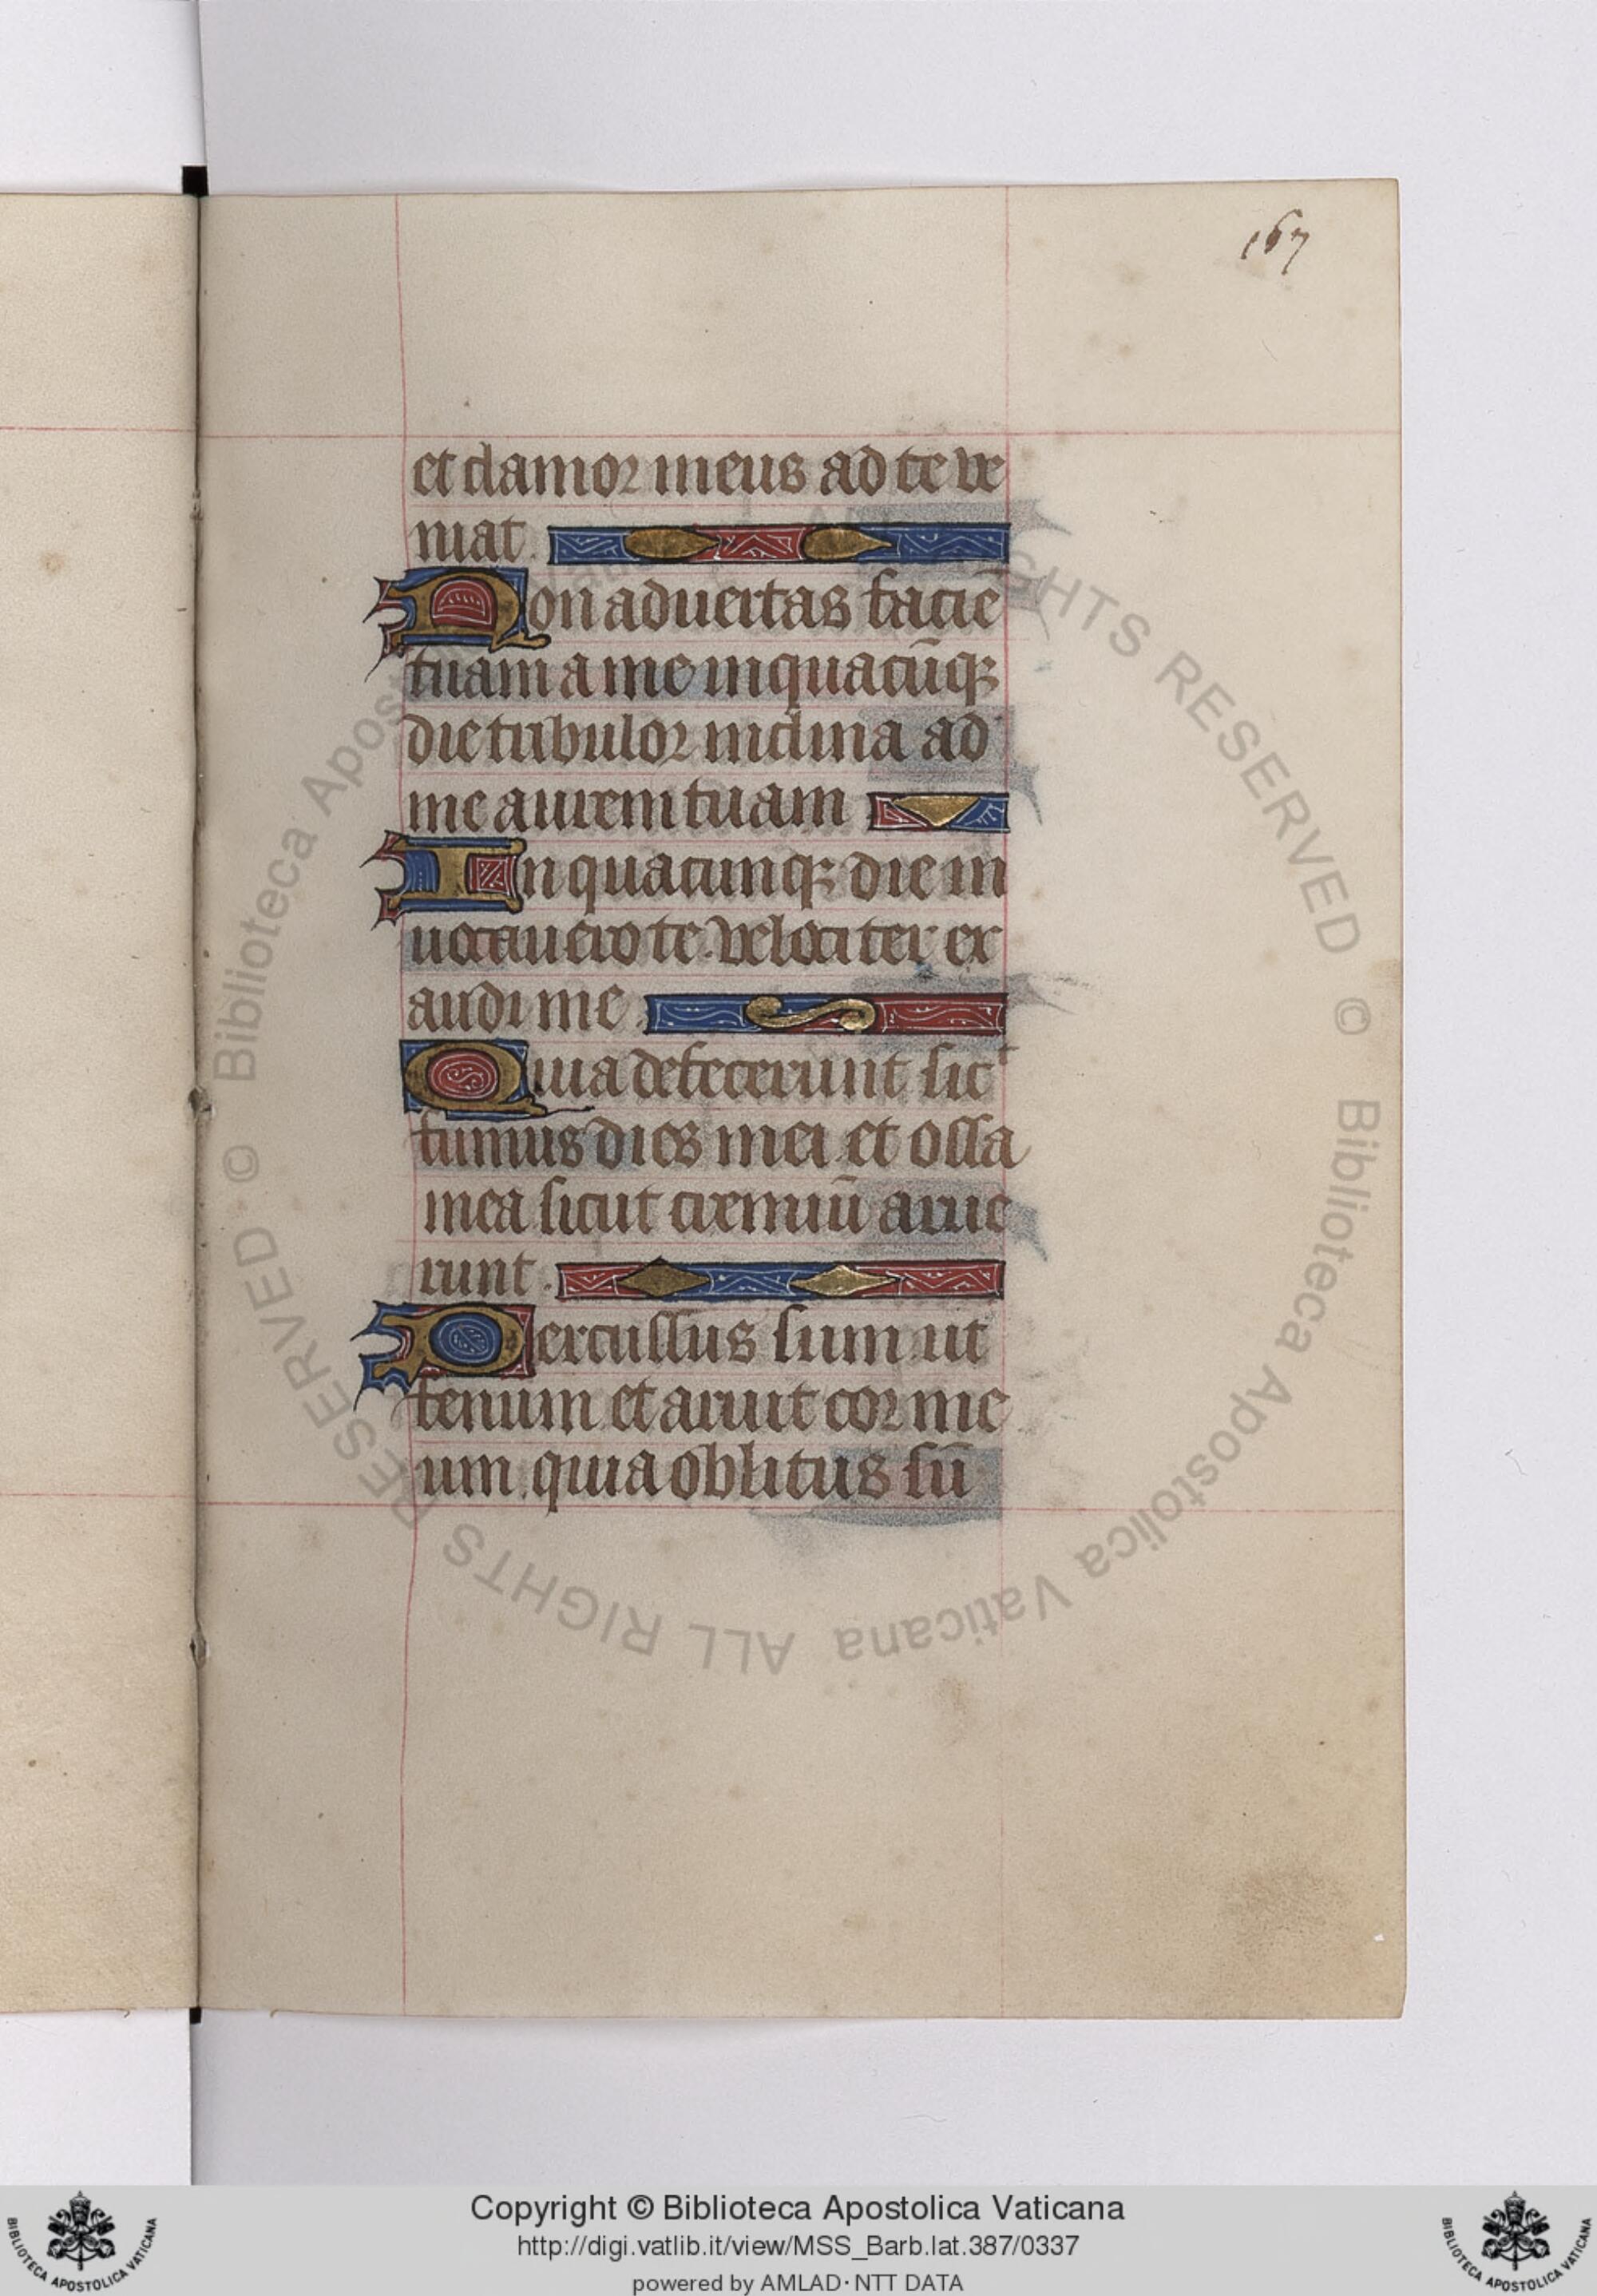 167
et clamor meus ad te ve
niat.
Non advertas faciē
tuam a me in quacūqꝫ
die tribulor inclina ad
me aurem tuam
In quacunqꝫ die in
vocavero te. velociter ex
audi me.
Quia defecerunt sicᵗ
fumus dies mei et ossa
mea sicut cremiū arue
runt.
Percussus sum ut
fenum et aruit cor me
um quia oblitus sū
© Biblioteca Apostolica Vaticana ALL RIGHTS RESERVED
Copyright © Biblioteca Apostolica Vaticana
http://digi.vatlib.it/view/MSS_Barb.lat.387/0337
powered by AMLAD·NTT DATA
BIBLIOTECA APOSTOLICA VATICANA
BIBLIOTECA APOSTOLICA VATICANA